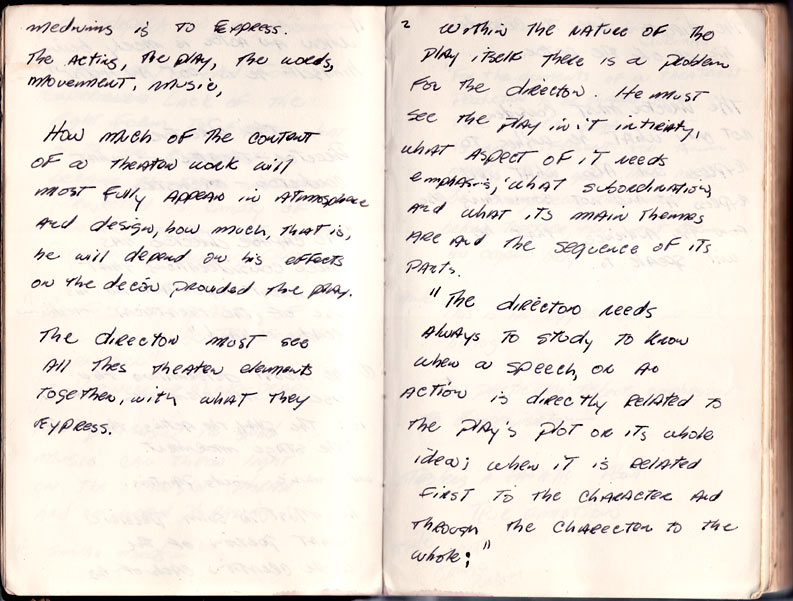 mediums is to Express.
The Acting, The play, The words,
movement, music,
How much of the content
of a theater work will
most fully Appear in Atmosphere
And design, how much, that is,
he will depend on his effects
on the decor provided the play.
The director must see
All thes theater elements
together, with what they
Express.
2 within the nature of the
play itself there is a problem
for the director. He must
see the play in it intirety,
what Aspect of it needs
emphasis, what subordination,
And what its main themes
Are And the sequence of its
parts.
"The director needs
Always to study to know
when a speech, or An
Action is directly related to
the play's plot or its whole
idea; when it is related
first to the character And
through the charecter to the
whole;"